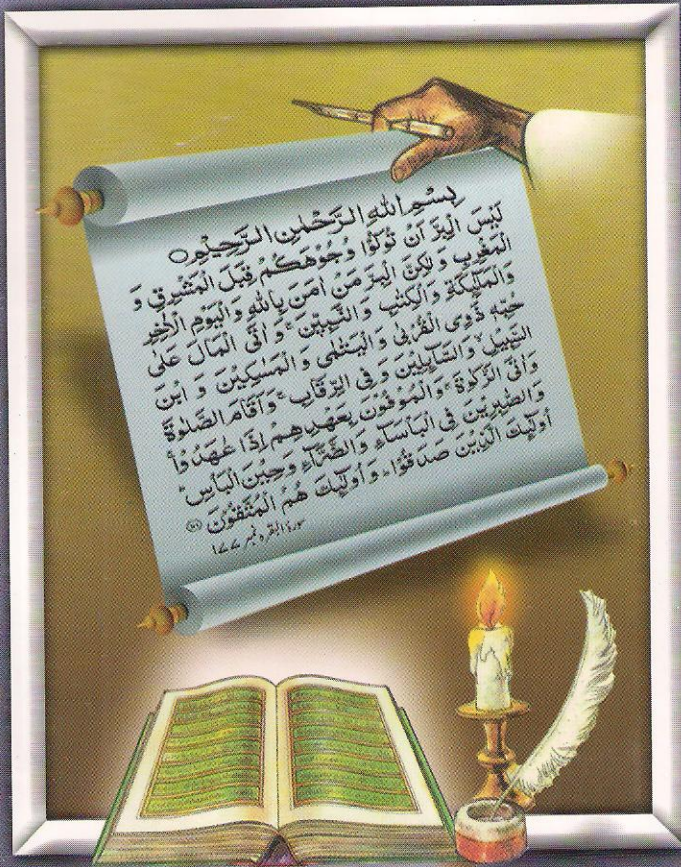 بِسْمِ اللهِ الرَّحْمٰنِ الرَّحِيْمِ
لَيْسَ الْبِرَّ اَنْ تُوَلُّوْا وُجُوْهَكُمْ قِبَلَ الْمَشْرِقِ وَ
الْمَغْرِبِ وَلٰكِنَّ الْبِرَّ مَنْ اٰمَنَ بِاللهِ وَالْيَوْمِ الْاٰخِرِ
وَالْمَلٰٓئِكَةِ وَالْكِتٰبِ وَالنَّبِيّٖنَ وَاٰتَى الْمَالَ عَلٰى
حُبِّهٖ ذَوِى الْقُرْبٰى وَالْيَتٰمٰى وَالْمَسٰكِيْنَ وَ ابْنَ
السَّبِيْلِ وَالسَّآئِلِيْنَ وَفِى الرِّقَابِ وَاَقَامَ الصَّلٰوةَ
وَاٰتَى الزَّكٰوةَ وَالْمُوْفُوْنَ بِعَهْدِهِمْ اِذَا عٰهَدُوْا
وَالصّٰبِرِيْنَ فِى الْبَاْسَآءِ وَالضَّرَّآءِ وَحِيْنَ الْبَاْسِ
اُولٰٓئِكَ الَّذِيْنَ صَدَقُوْا وَاُولٰٓئِكَ هُمُ الْمُتَّقُوْنَ
سورة البقره نمبر ۱۷۷